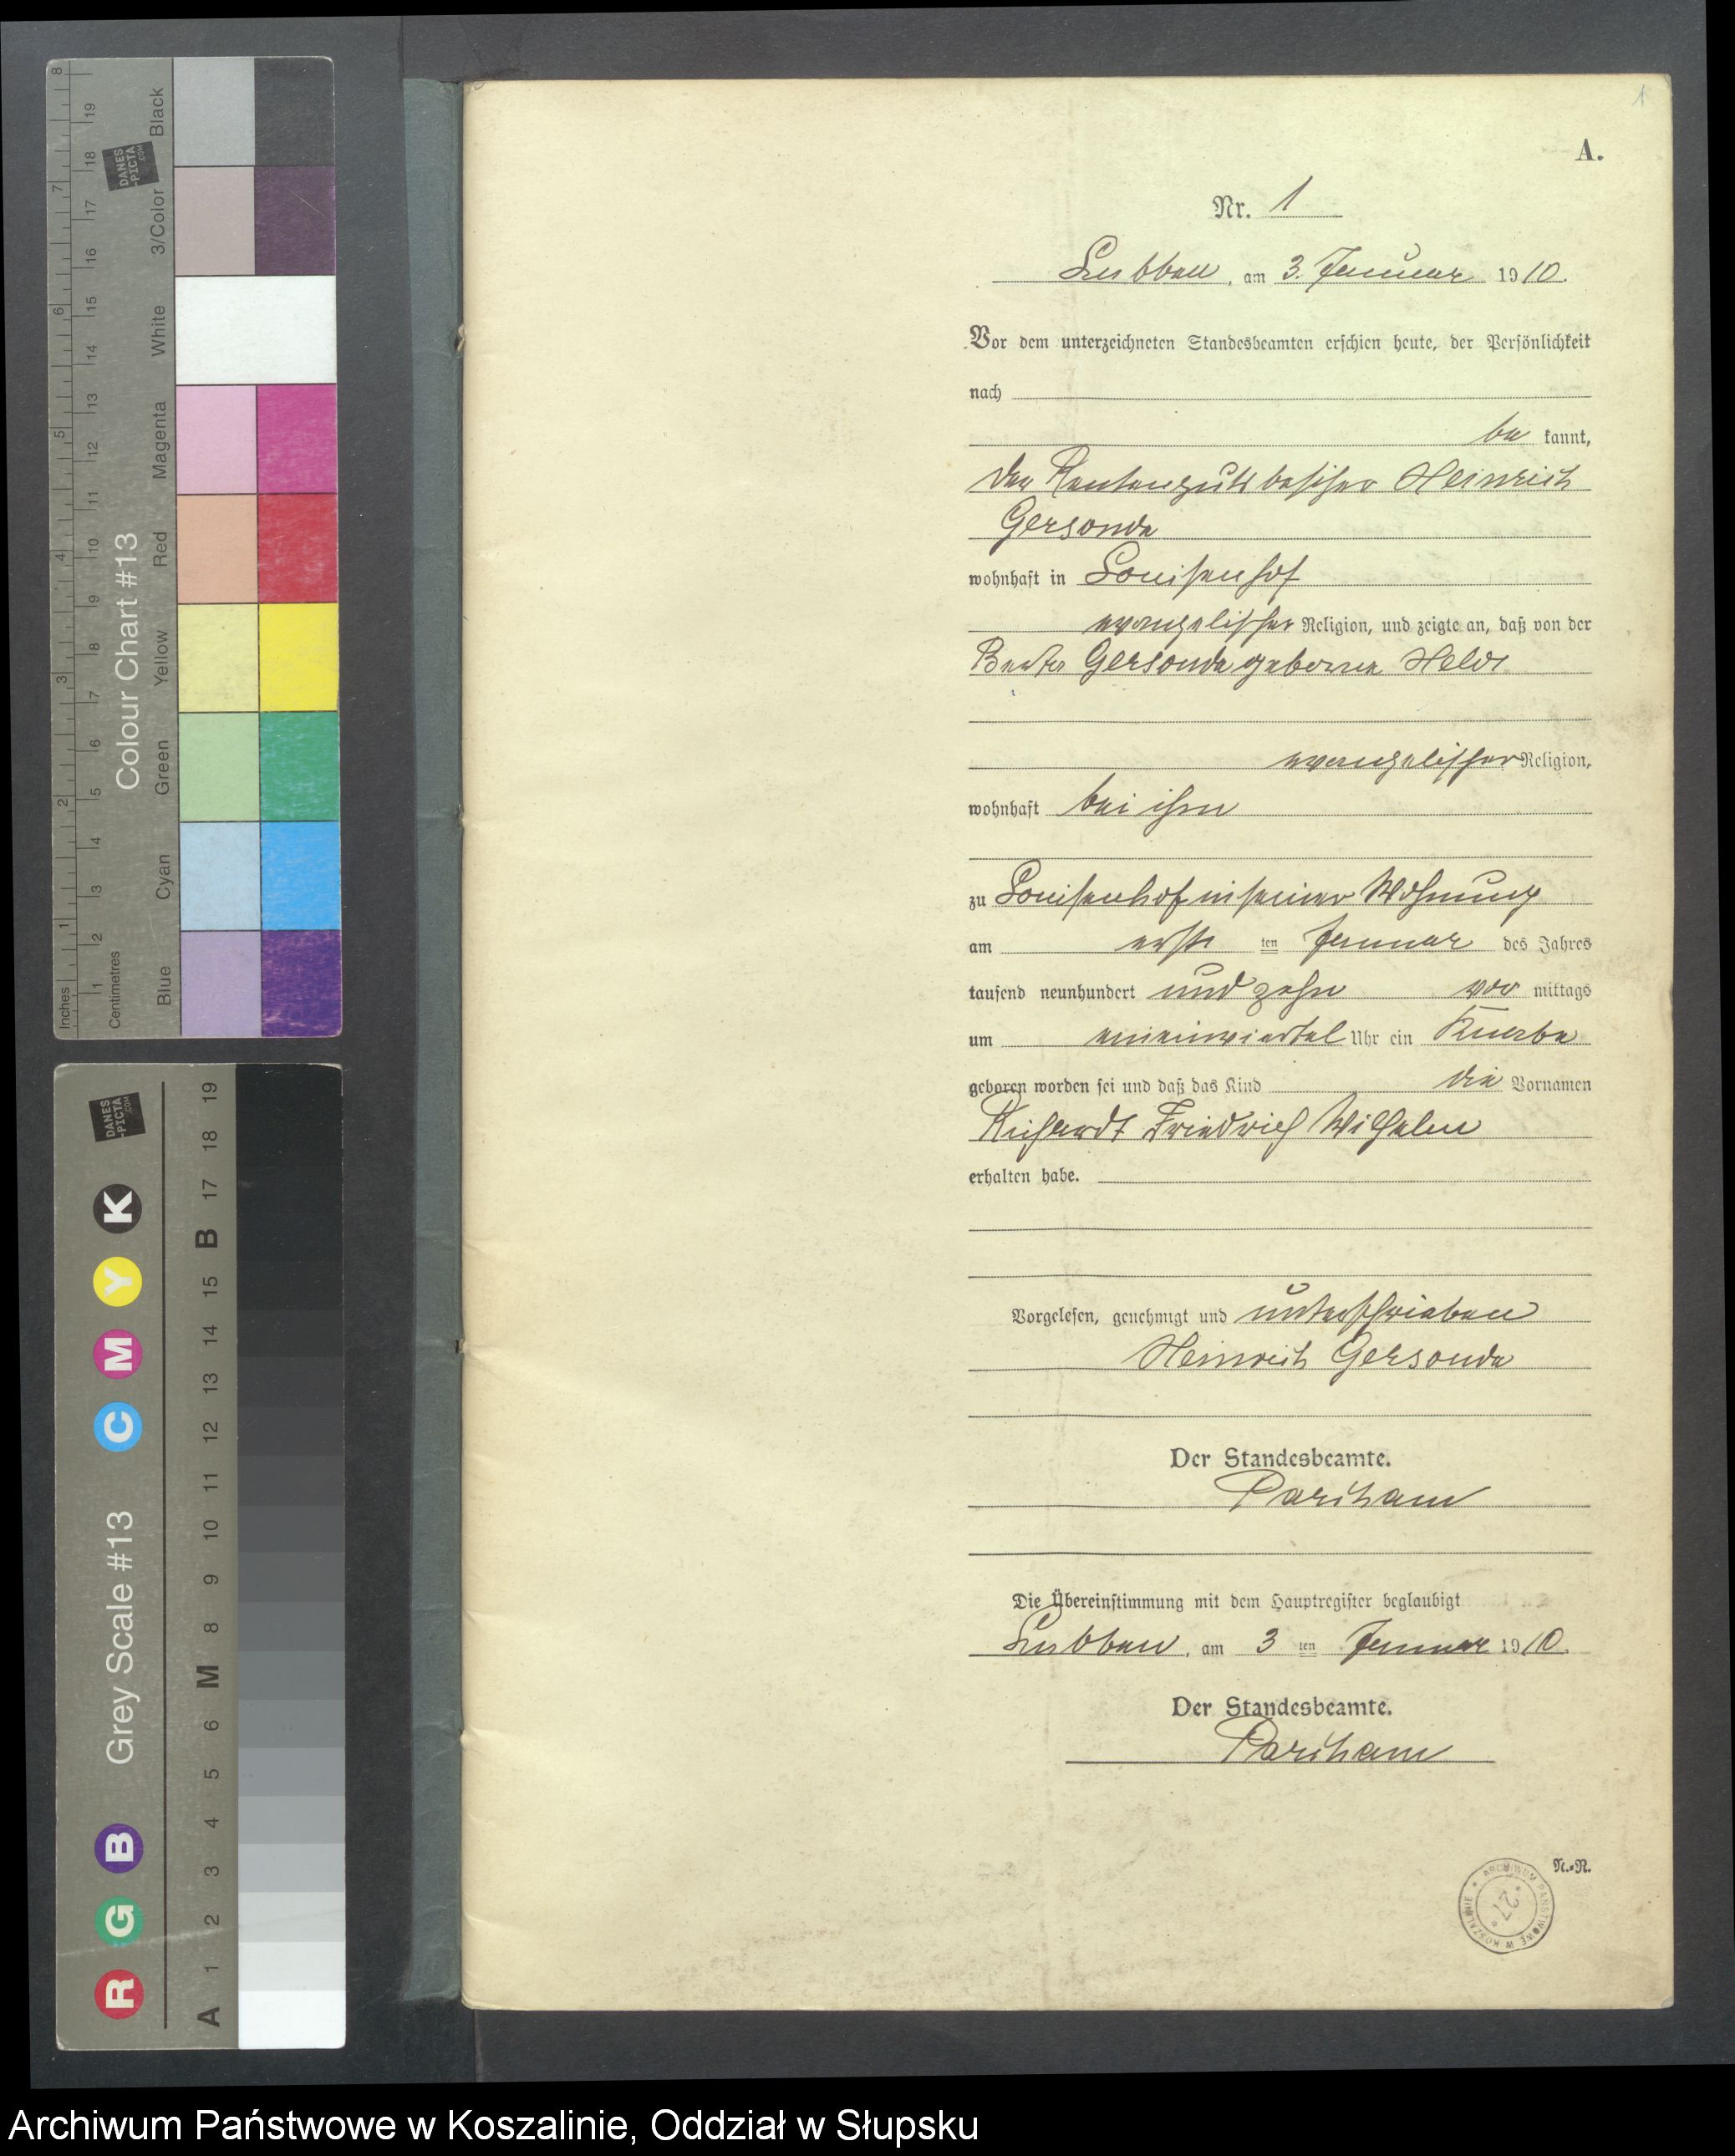 1
A.
Nr. 1
Lubben, am 3. Januar 1910.
Vor dem unterzeichneten Standesbeamten erschien heute, der Persönlichkeit
nach
be kannt,
der Rentengutsbesitzer Heinrich
Gersonde
wohnhaft in Louisenhof
evangelischer Religion, und zeigte an, daß von der
Gersonde geborene Held
evangelischer Religion,
wohnhaft bei ihm
zu Louisenhof in seiner Wohnung
am erste ten Januar des Jahres
tausend neunhundert und zehn vor mittags
um Uhr ein Knabe
geboren worden sei und daß das Kind die Vornamen
Richardt Friedrich Wilhelm
erhalten habe.
Vorgelesen, genehmigt und unterschrieben
Heinrich Gersonde
Der Standesbeamte.
Die Übereinstimmung mit dem Hauptregister beglaubigt
Lubben, am 3 ten Januar 1910.
Der Standesbeamte.
N.=N.
ARCHIWUM PAŃSTWOWE W KOSZALINIE
27
Colour Chart #13
Inches
1 2 3 4 5 6 7 8
Centimetres
1 2 3 4 5 6 7 8 9 10 11 12 13 14 15 16 17 18 19
Blue Cyan Green Yellow Red Magenta White 3/Color Black
DANES
-PICTA
.COM
Grey Scale #13
R G B C M Y K
A 1 2 3 4 5 6 M 8 9 10 11 12 13 14 15 B 17 18 19
DANES
-PICTA
.COM
Archiwum Państwowe w Koszalinie, Oddział w Słupsku